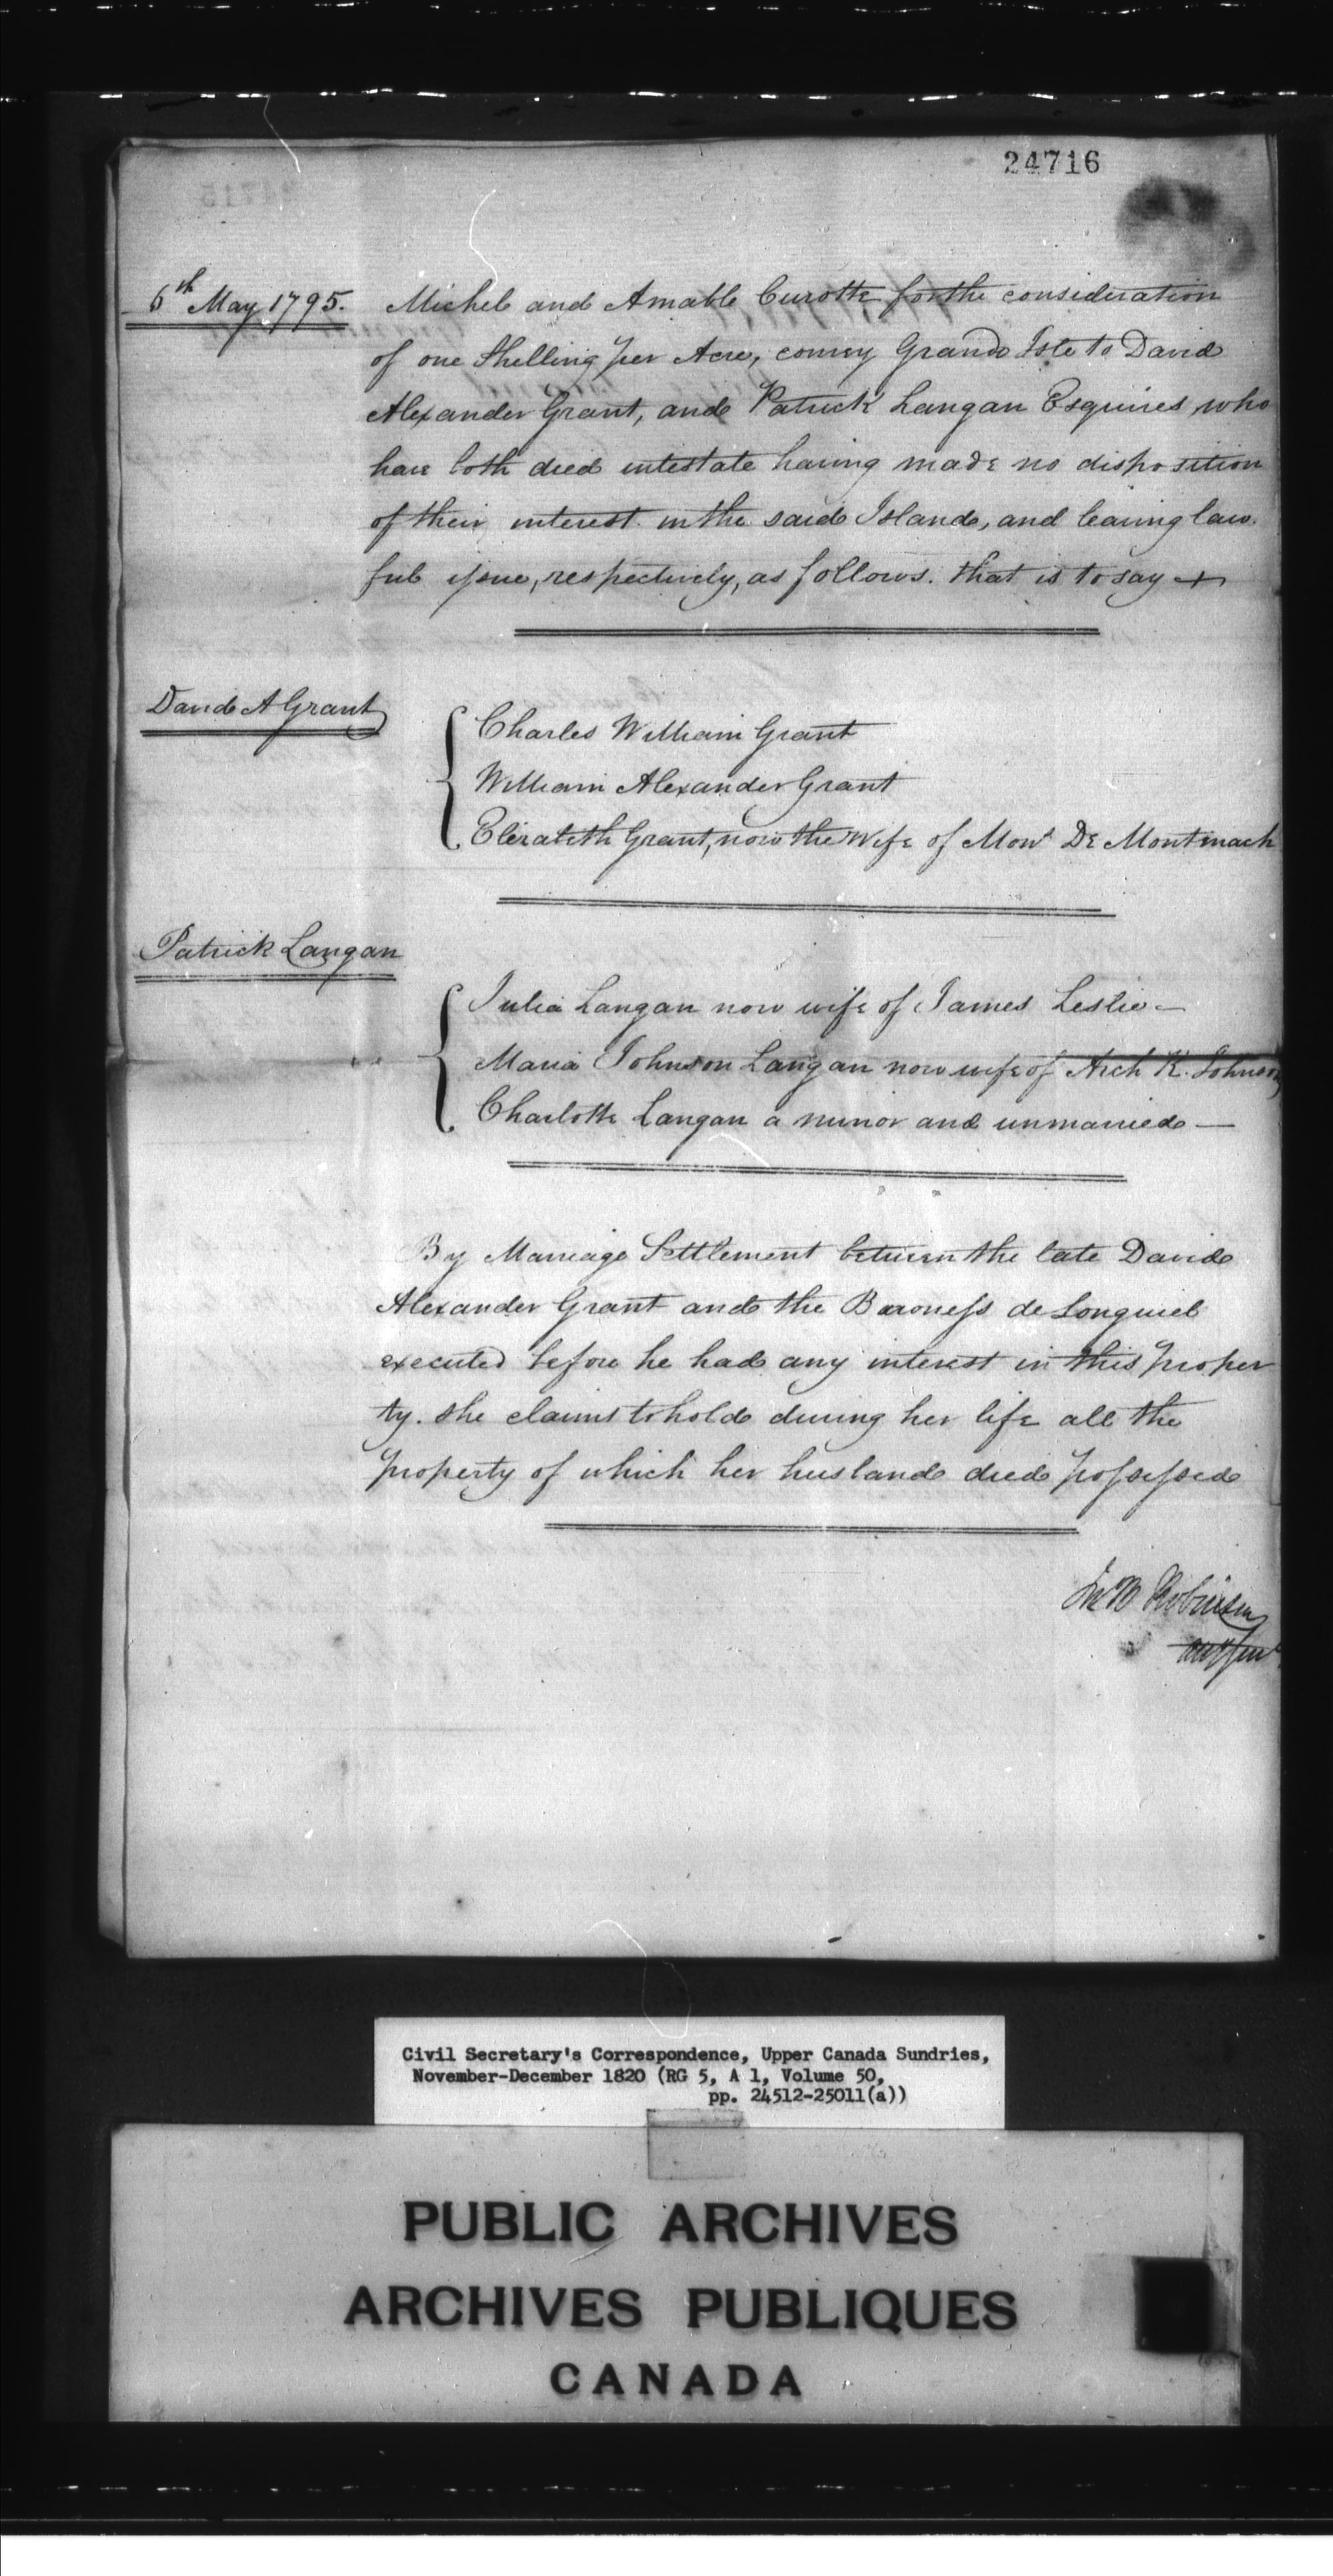 24716
6th May 1795. Michel and Amable Curotte for the consideration
of one Shelling per Acre, convey Grand Isle to David
Alexander Grant, and Patrick Langan Esquires, who
have both died intestate having made no disposition
of their interest in the said Island, and leaving law-
ful issue, respectively, as follows. that is to say
David A Grant
Charles William Grant
William Alexander Grant
Elizabeth Grant, now the Wife of Monr De Montenach
Patrick Langan
Julia Langan now wife of James Leslie —
Maria Johnson Langan now wife of Arch K. Johnson
Charlotte Langan a minor and unmarried —
By Marriage Settlement between the late David
Alexander Grant and the Baroness de Longuiel
executed before he had any interest in this proper
ty. she claims to hold during her life all the
property of which her husband died possessed
Jno B Robinson
Atty Genl
Civil Secretary's Correspondence, Upper Canada Sundries,
November-December 1820 (RG 5, A 1, Volume 50,
pp. 24512-25011(a))
PUBLIC ARCHIVES
ARCHIVES PUBLIQUES
CANADA